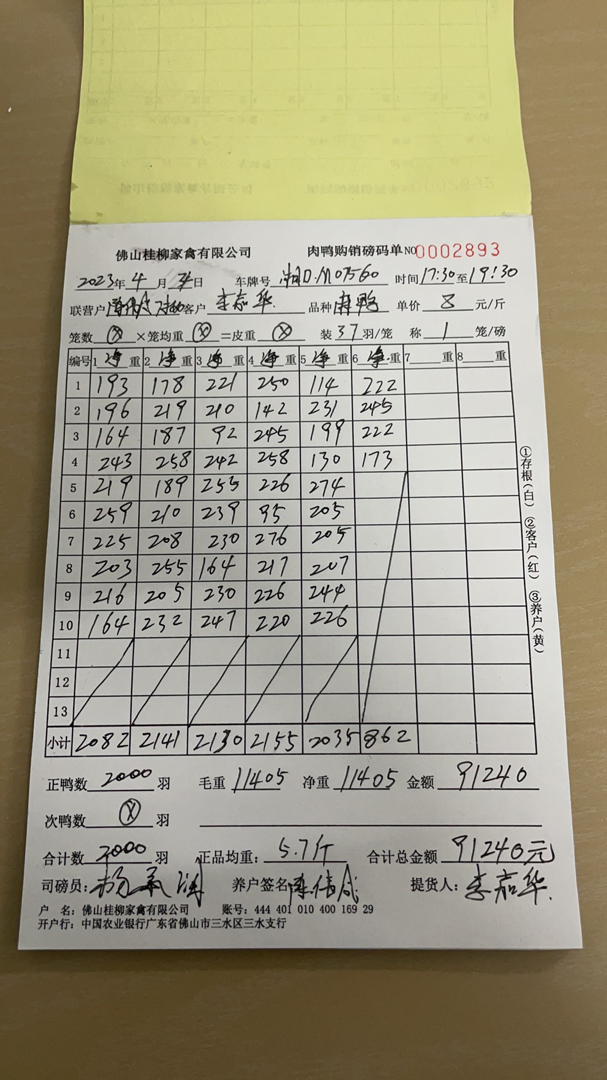 佛山桂柳家禽有限公司 肉鸭购销磅码单 NO 0002893
2023年 4月 日 车牌号 湘D.M07560 时间 17:30 至 19:30
联营户 客户 李嘉华 品种 麻鸭 单价 8 元/斤
笼数 ⓧ ×笼均重 ⓧ =皮重 ⓧ 装 37 羽/笼 称 1 笼/磅
编号 1 净 重 2 净 重 3 净 重 4 净 重 5 净 重 6 净 重 7 重 8 重
1 193 178 221 250 114 222
2 196 219 210 142 231 245
3 164 187 92 245 199 222
4 243 258 242 258 130 173
5 219 189 255 226 274
6 259 210 239 95 205
7 225 208 230 276 205
8 203 255 164 217 207
9 216 205 230 226 244
10 164 232 247 220 226
11
12
13
小计 2082 2141 2130 2155 2035 862
①存根(白) ②客户(红) ③养户(黄)
正鸭数 2000 羽 毛重 11405 净重 11405 金额 91240
次鸭数 ⓧ 羽
合计数 2000 羽 正品均重: 5.7斤 合计总金额 91240元
司磅员: 养户签名 陈伟成 提货人: 李嘉华
户 名: 佛山桂柳家禽有限公司 账号: 444 401 010 400 169 29
开户行: 中国农业银行广东省佛山市三水区三水支行